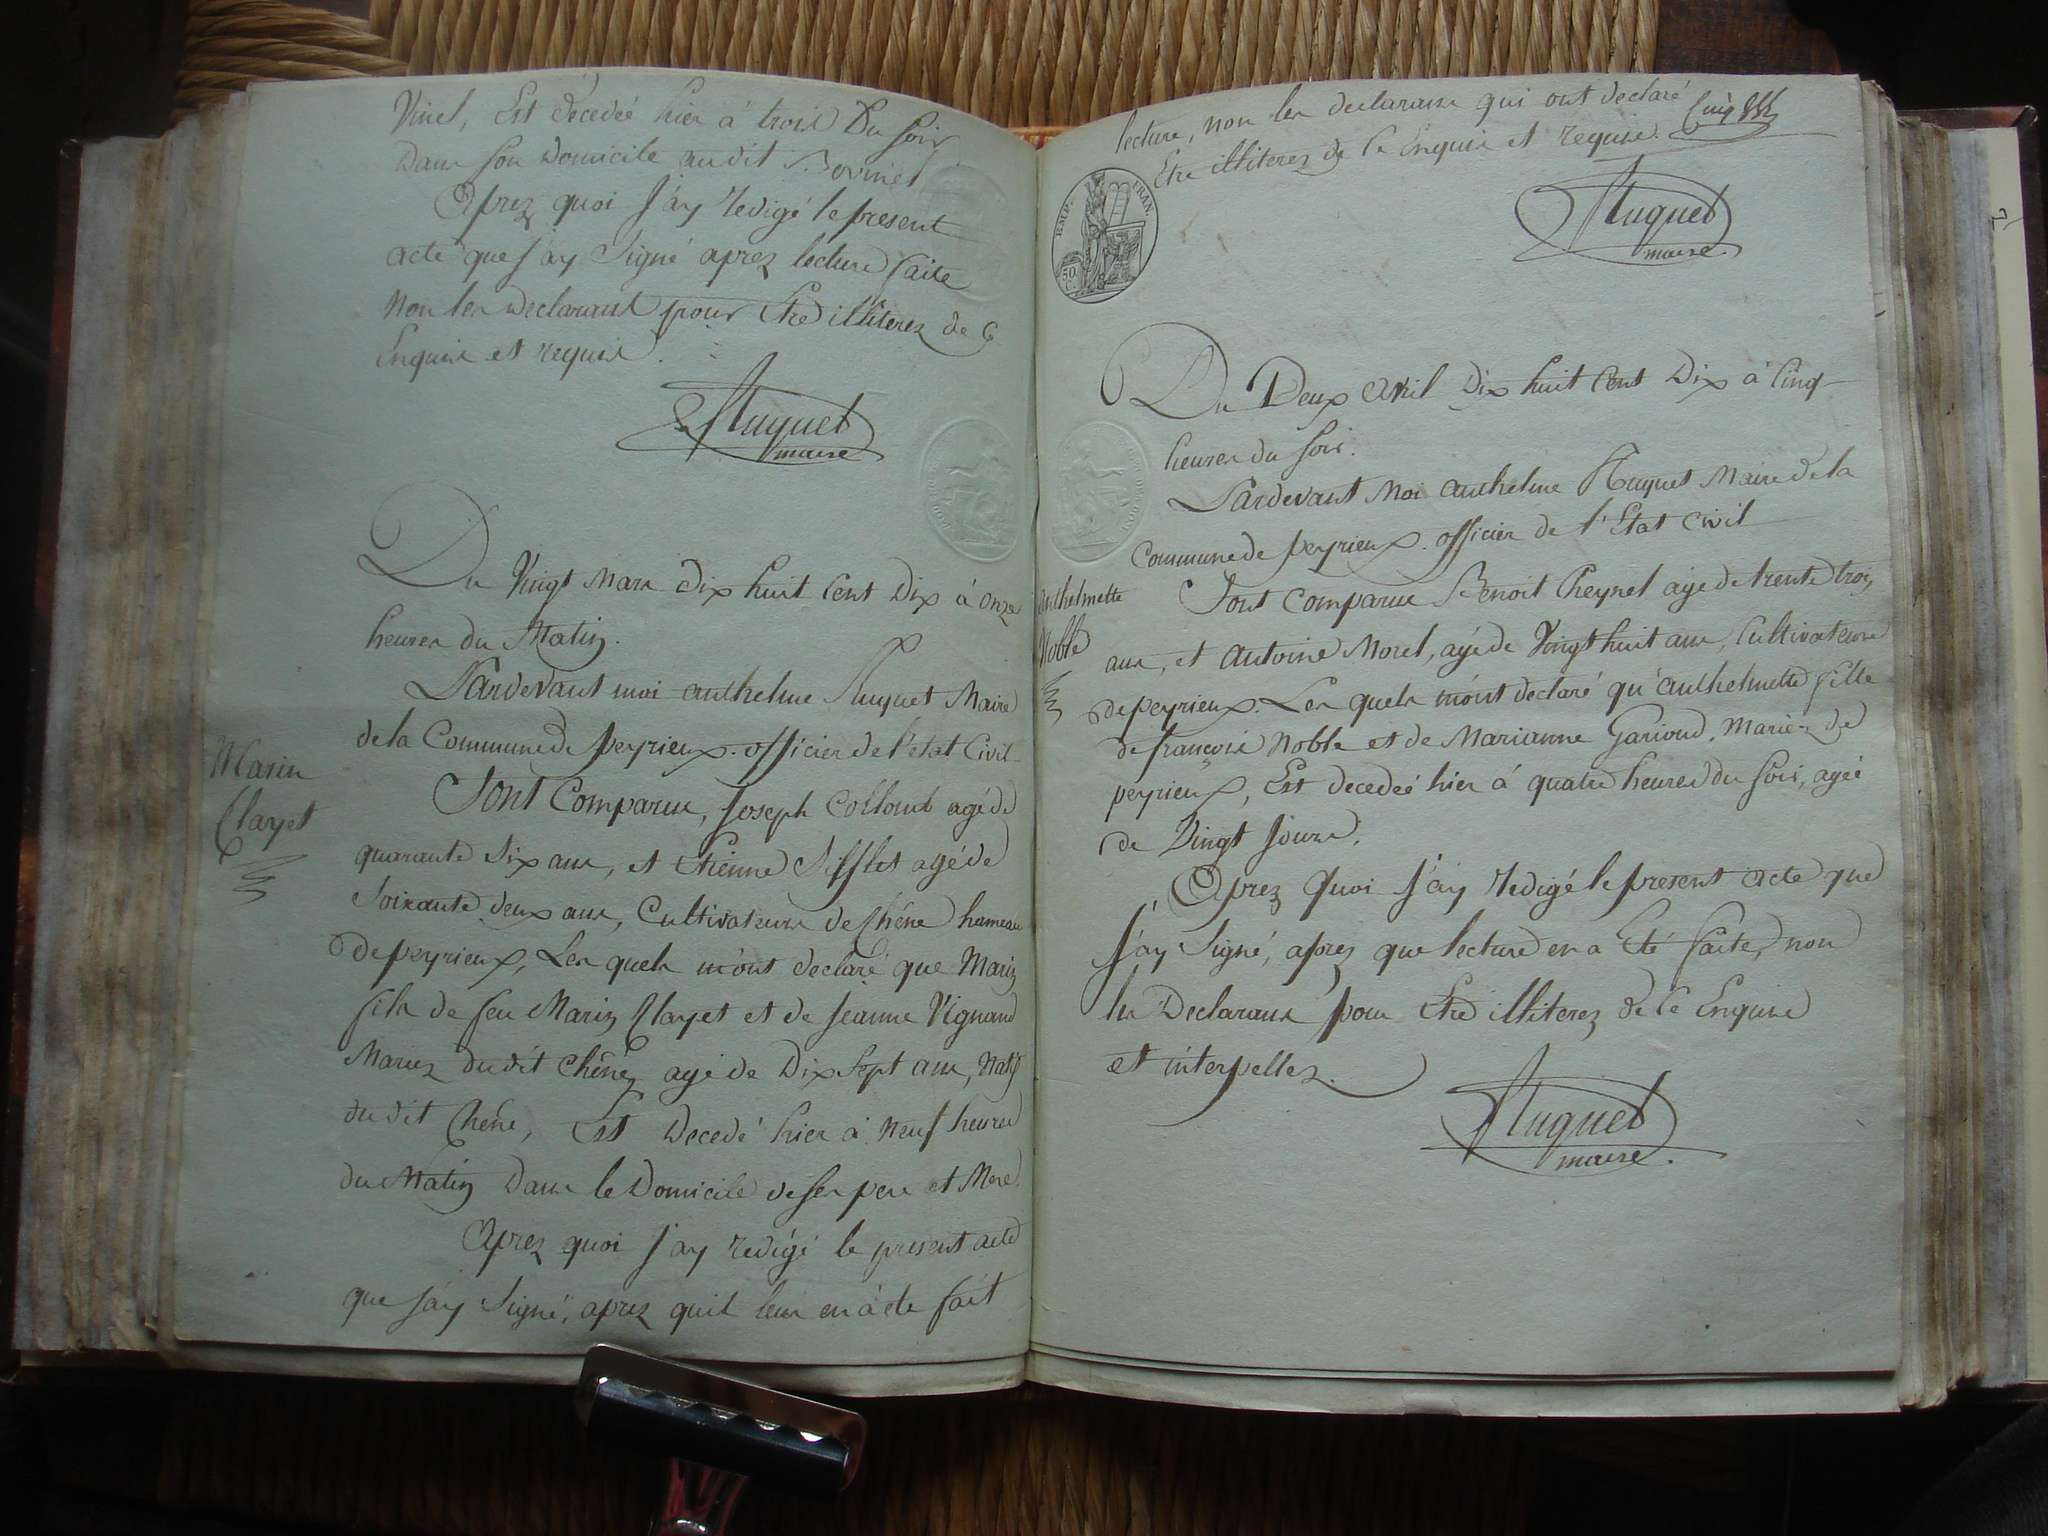 Vinel, Est décedée hier á trois Du soir
Dans son domicile audit
Aprez quoi J'ay redigé le present
acte que J'ay Signé aprez lecture faite
Non les declarans pour Etre illiterez de ce
Enquis et requis.
Huguet
maire
Du Vingt Mars dix huit Cent Dix à onze
heures du Matin.
Pardevant moi anthelme Huguet Maire
de la Commune de peyrieux. officier de l'état Civil
Marin
Clayet
Sont Comparus, Joseph Colloud agé de
quarante six ans, et Etienne Sifflet agé de
Soixante deux ans, Cultivateurs de Chêne hameau
de peyrieux, Les quels m'ont declaré que Marin
fils de feu Marin Clayet et de Jeanne Vignand
Mariez du dit Chêne, agé de Dix Sept ans, Natif
du dit Chêne, Est Decedé hier à Neuf heures
du Matin Dans le Domicile de ses pere et Mere.
Aprez quoi J'ay redigé le present acte
que J'ay Signé, aprez quil leur en à ete fait
lecture, non les declarans qui ont declaré
Etre illiterez de ce Enquis et requis.
EMP. FRAN.
50
C.
Huguet
maire
Du Deux Avril Dix huit Cent Dix à Cinq
heures du soir.
Pardevant Moi anthelme Huguet Maire de la
Commune de peyrieux. officier de l'Etat Civil
anthelmette
Noble
Sont Comparus Benoit Cheynel agé de trente trois
ans, et Antoine Morel, agé de Vingt huit ans, Cultivateurs
de peyrieux. Les quels m'ont declaré qu'anthelmette fille
de françois Noble et de Marianne Garioud, Mariez de
peyrieux, Est decedeé hier à quatre heures du soir, ageé
de Vingt Jours.
Aprez Quoi J'ay redigé le present acte que
J'ay Signé, aprez que lecture en a Eté faite, non
les Declarans pour Etre illiterez de ce Enquis
et interpellez.
Huguet
maire.